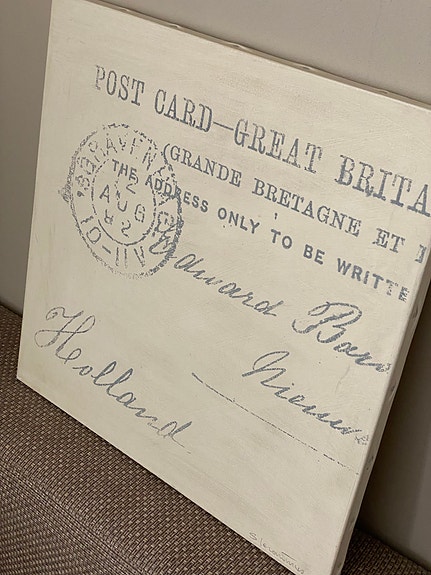 POST CARD—GREAT BRITA
(GRANDE BRETAGNE ET I
THE ADDRESS ONLY TO BE WRITTE
AUG
82
Edward Bar
Nieuwe
Holland